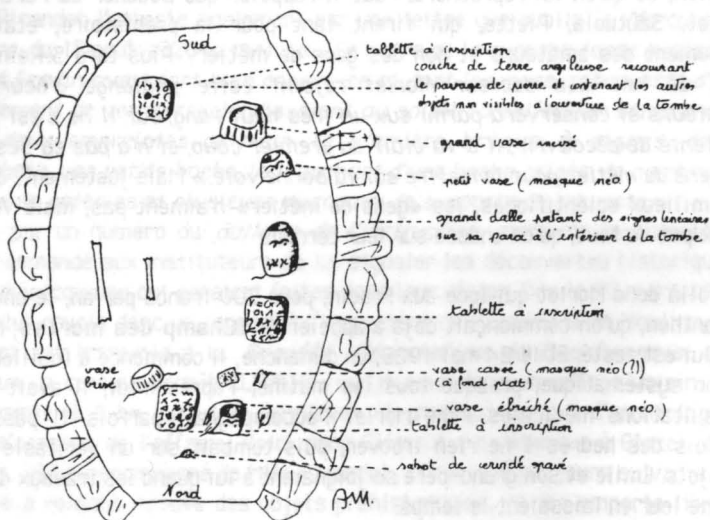 Sud
tablette à inscription
couche de terre argileuse recouvrant
le pavage de pierre et contenant les autres
objets non visibles à l'ouverture de la tombe
grand vase renversé
petit vase (masque néo)
grande dalle portant des signes linéaires
sur la surface de l'intérieur de la tombe
tablette à inscription
vase
brisé
vase cassé (masque néo (?))
(à bord plat)
vase ébréché (masque néo)
tablette à inscription
sabot de cervidé gravé
Nord
A.M.